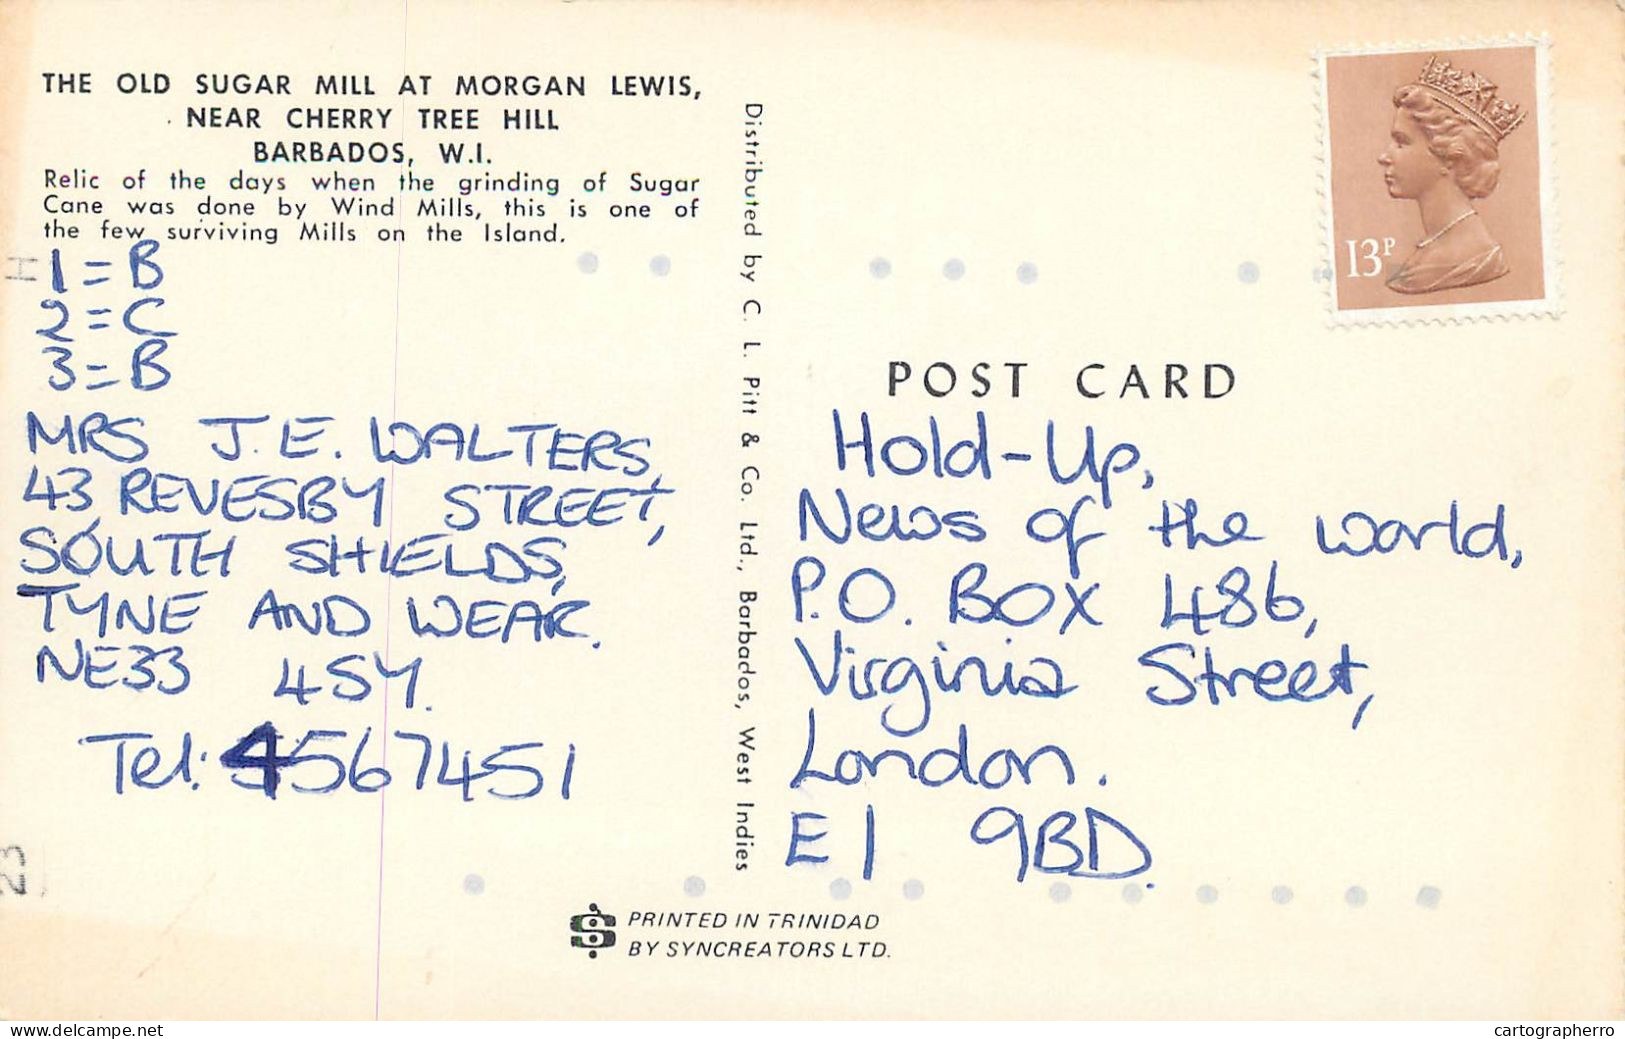 THE OLD SUGAR MILL AT MORGAN LEWIS,
NEAR CHERRY TREE HILL
BARBADOS, W.I.
Relic of the days when the grinding of Sugar
Cane was done by Wind Mills, this is one of
the few surviving Mills on the Island.
H
1 = B
2 = C
3 = B
MRS J.E. WALTERS,
43 REVESBY STREET,
SOUTH SHIELDS,
TYNE AND WEAR.
NE33 4SY.
Tel: 4567451
23
Distributed by C. L. Pitt & Co. Ltd., Barbados, West Indies
13P
POST CARD
Hold-Up,
News of the world,
P.O. BOX 486,
Virginia Street,
London.
E1 9BD.
PRINTED IN TRINIDAD
BY SYNCREATORS LTD.
www.delcampe.net
cartographerro